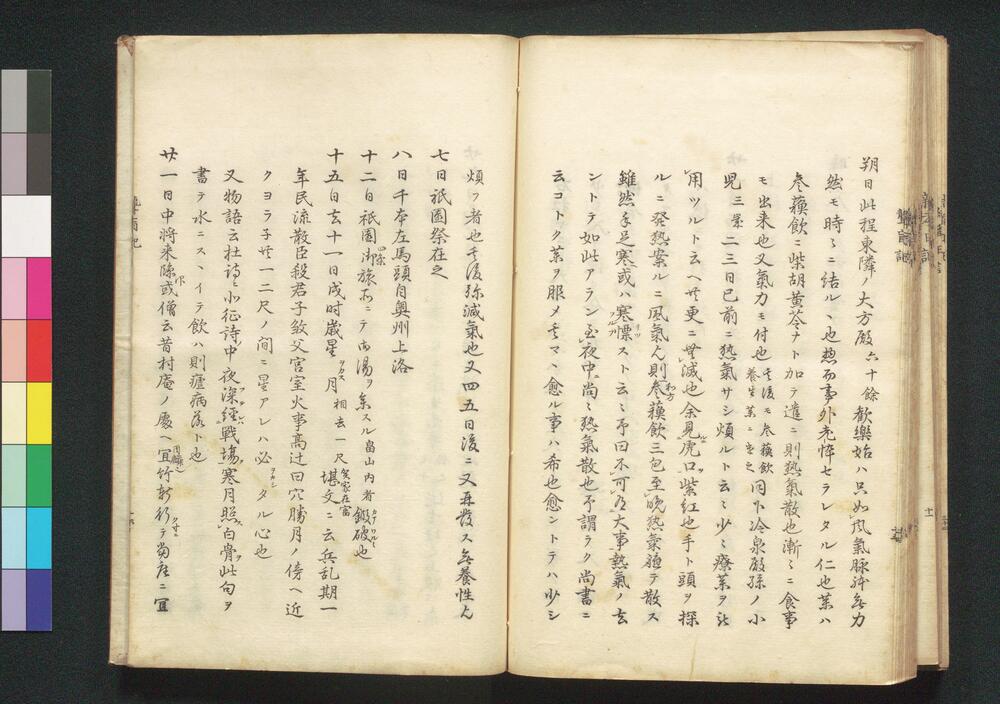 朔日此程東隣ノ大方殿六十餘歓樂始ハ只如風氣脉躰無力
然モ時々ニ結ル、也惣而事外老悴セラレタル仁也薬ハ
参蘓飲ニ柴胡黄芩ナト加テ遣ニ則熱氣散也漸々ニ食事
モ出来也又氣力モ付也其後モ参蘓飲養生薬ニ在之同下冷泉殿孫ノ小
児三歳二三日已前ニ熱氣サシ煩ルト云々少々療薬ヲ
用ツルト云ヘ共更ニ無減也余見虎口紫紅也手ト頭ヲ探
ルニ發熱案ルニ風氣ン則参蘓飲三包至晩熱氣
散ス
雖然手足寒或ハ寒慄スト云々予曰不可有大事熱氣ノ去
ントテ如此アラン至夜中尚々熱氣散也予謂ラク尚書ニ
云コトク薬ヲ服メ
愈ル事ハ希也愈ントテハ少シ
煩フ者也其後弥減氣也又四五日後ニ又再發ス無養性ン
七日祇園祭在之
八日千本左馬頭自奥州上洛
十二日祇園御旅所ニテ御湯ヲ参スル畠山内者鍛破也
十五日去十一日戌時歳星ヲカス月相去一尺
堪文ニ云兵乱期一
年民流散臣殺君子敘父宮室火事高辻曰穴勝月ノ傍ヘ近
クヨラ子共一二尺ノ間ニ星アレハ必ヲカシタル心也
又物語云杜詩ニ北征詩中夜深經戰場寒月照白骨此句ヲ
書テ水ニスヽイテ飲ハ則瘧病落ト也
廿一日中将来
或僧云昔村庵ノ處ヘ宜竹
行テ
ニ宜